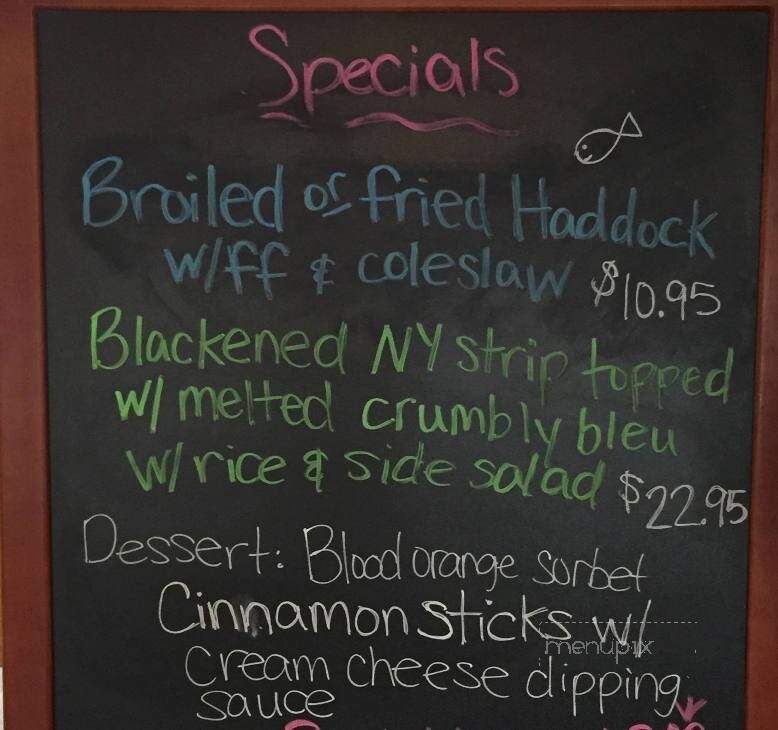 Specials
Broiled or fried Haddock
w/ff & coleslaw $10.95
Blackened NY strip topped
w/ melted crumbly bleu
w/ rice & side salad $22.95
Dessert: Blood orange sorbet
Cinnamon sticks w/
menupix
cream cheese dipping
sauce